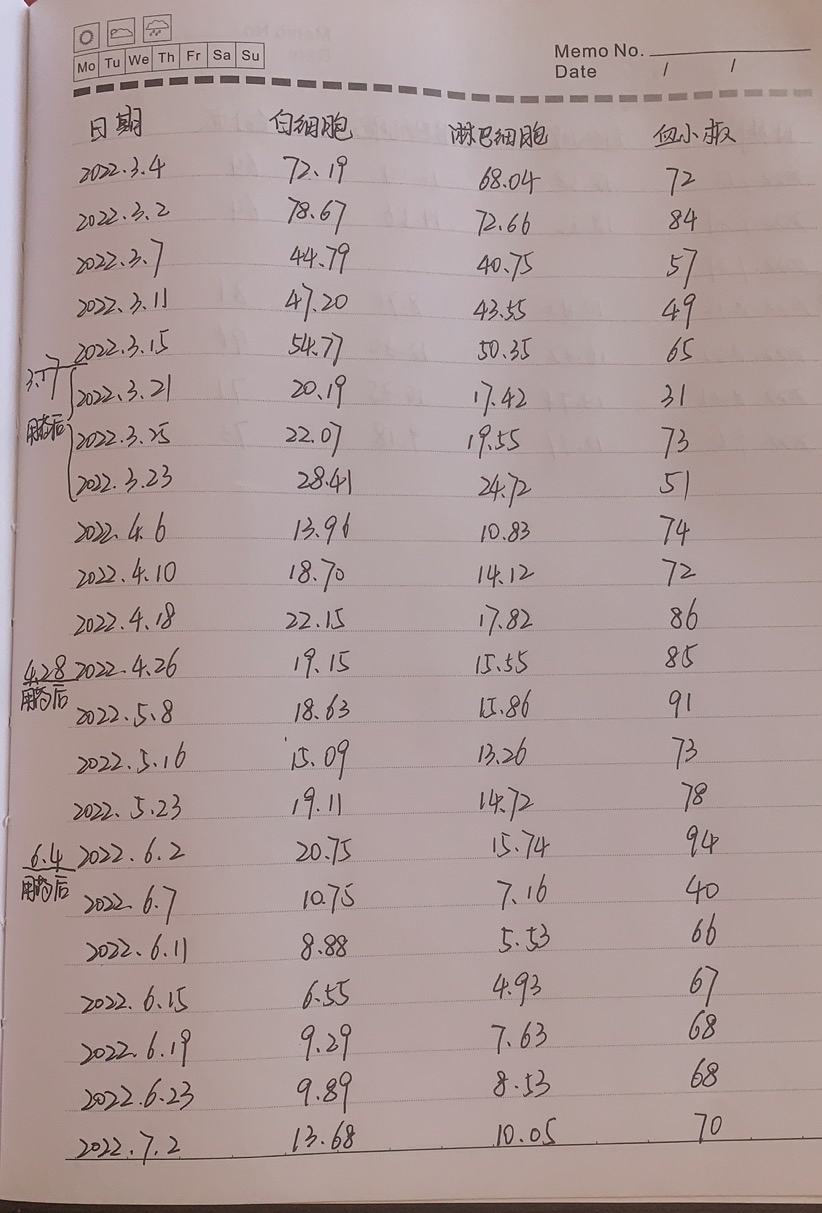 Mo Tu We Th Fr Sa Su
Memo No.
Date / /
日期 白细胞 淋巴细胞 血小板
2022.3.4 72.19 68.04 72
2022.3.2 78.67 72.66 84
2022.3.7 44.79 40.75 57
2022.3.11 47.20 43.55 49
2022.3.15 54.77 50.35 65
3.17
用药后
2022.3.21 20.19 17.42 31
2022.3.25 22.07 19.55 73
2022.3.23 28.41 24.72 51
2022.4.6 13.96 10.83 74
2022.4.10 18.70 14.12 72
2022.4.18 22.15 17.82 86
2022.4.26 19.15 15.55 85
4.28
用药后
2022.5.8 18.63 15.86 91
2022.5.16 15.09 13.26 73
2022.5.23 19.11 14.72 78
2022.6.2 20.75 15.74 94
6.4
用药后
2022.6.7 10.75 7.16 40
2022.6.11 8.88 5.53 66
2022.6.15 6.55 4.93 67
2022.6.19 9.29 7.63 68
2022.6.23 9.89 8.53 68
2022.7.2 13.68 10.05 70